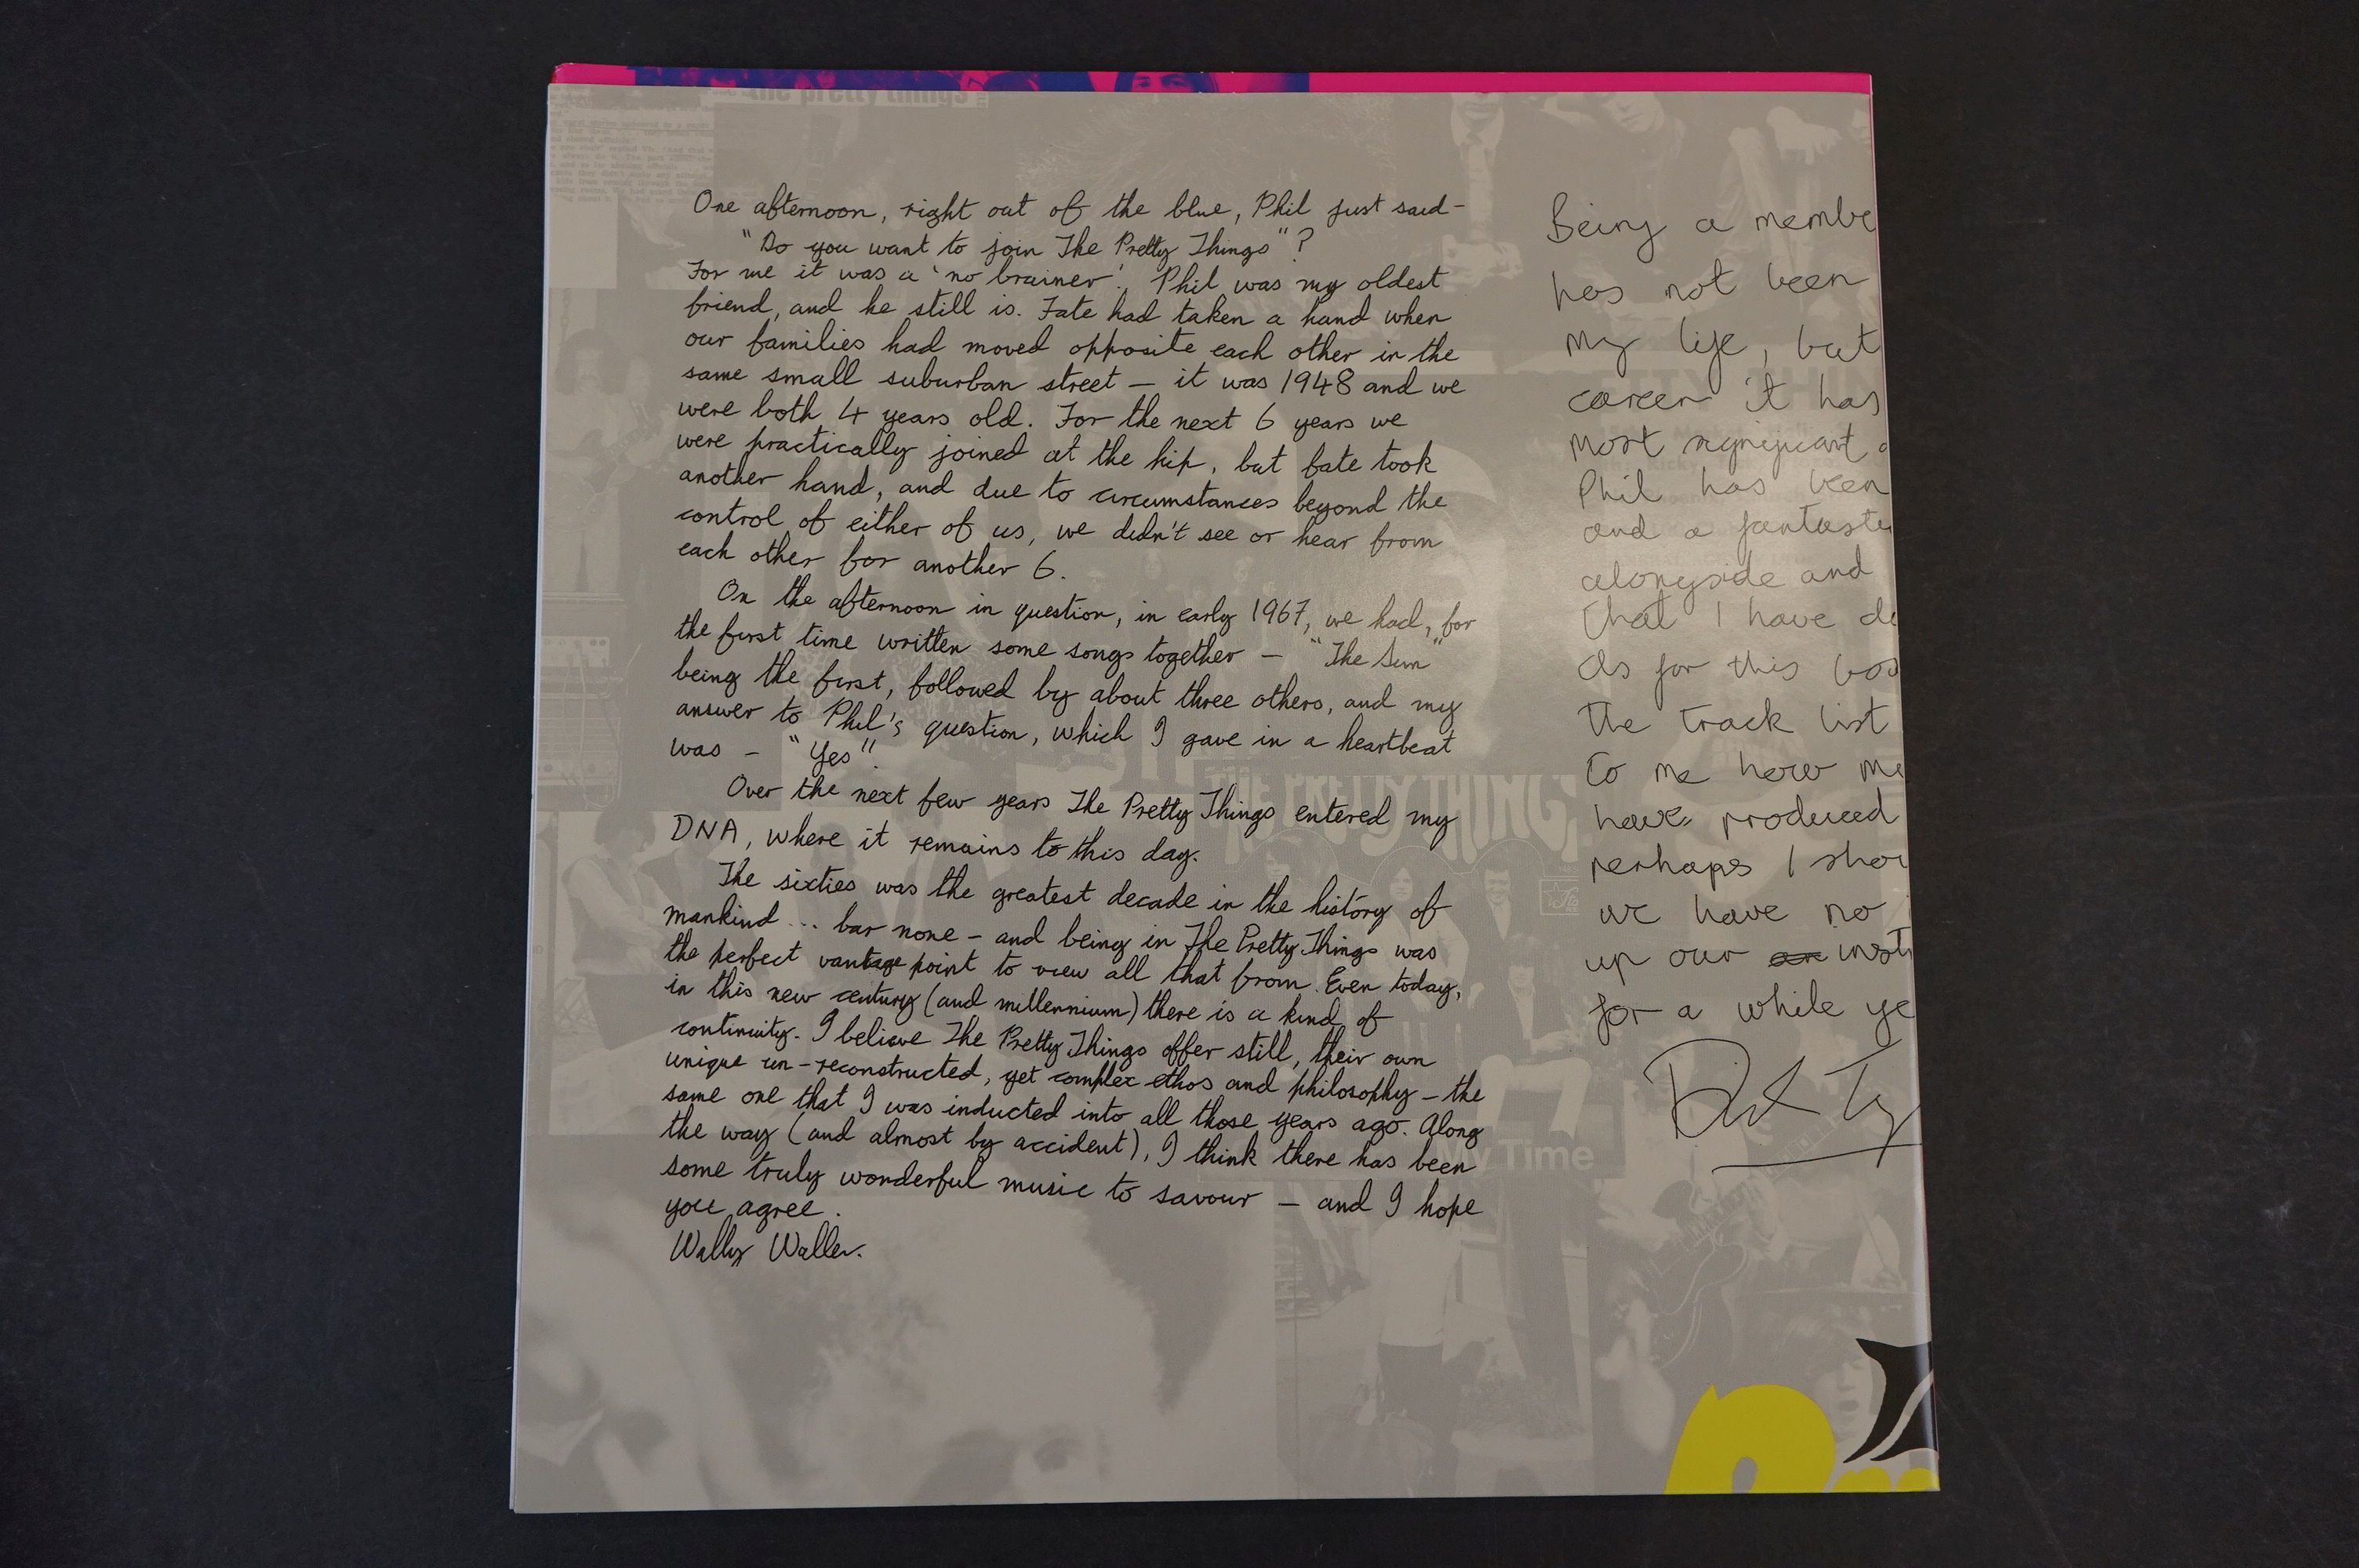 the pretty things
One afternoon, right out of the blue, Phil just said-
"Do you want to join The Pretty Things"?
For me it was a 'no brainer'. Phil was my oldest
friend, and he still is. Fate had taken a hand when
our families had moved opposite each other in the
same small suburban street – it was 1948 and we
were both 4 years old. For the next 6 years we
were practically joined at the hip, but fate took
another hand, and due to circumstances beyond the
control of either of us, we didn't see or hear from
each other for another 6.
On the afternoon in question, in early 1967, we had, for
the first time written some songs together – "The Sun"
being the first, followed by about three others, and my
answer to Phil's question, which I gave in a heartbeat
was – "Yes".
Over the next few years The Pretty Things entered my
DNA, where it remains to this day.
The sixties was the greatest decade in the history of
mankind ... bar none – and being in The Pretty Things was
the perfect vantage point to view all that from. Even today,
in this new century (and millennium) there is a kind of
continuity. I believe The Pretty Things offer still, their own
unique un-reconstructed, yet complex ethos and philosophy – the
same one that I was inducted into all those years ago. Along
the way (and almost by accident), I think there has been
some truly wonderful music to savour – and I hope
you agree.
Wally Waller.
Being a membe
has not been
my life, but
career it has
most significant
Phil has been
and a fantasti
alongside and
that I have de
As for this box
the track list
to me how m
have produced
perhaps I shou
we have no
up our inst
for a while ye
THE PRETTY THING
My Time